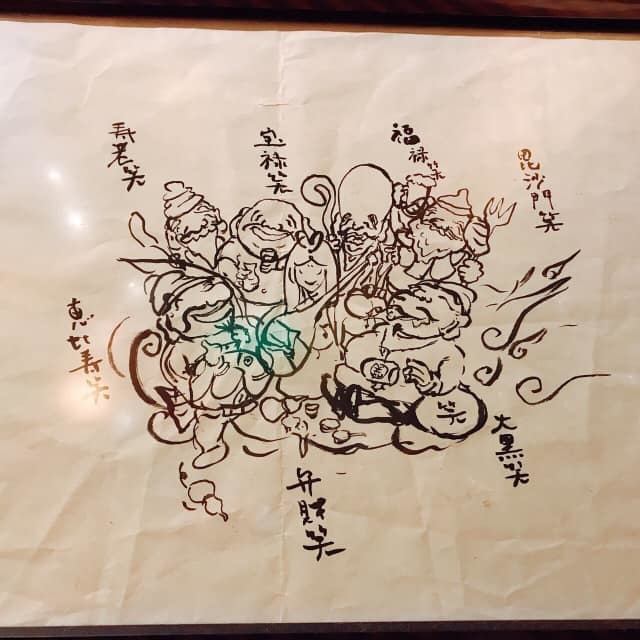 毘沙門笑
福禄笑
宝禄笑
寿老笑
恵比寿笑
笑
大黒笑
弁財笑